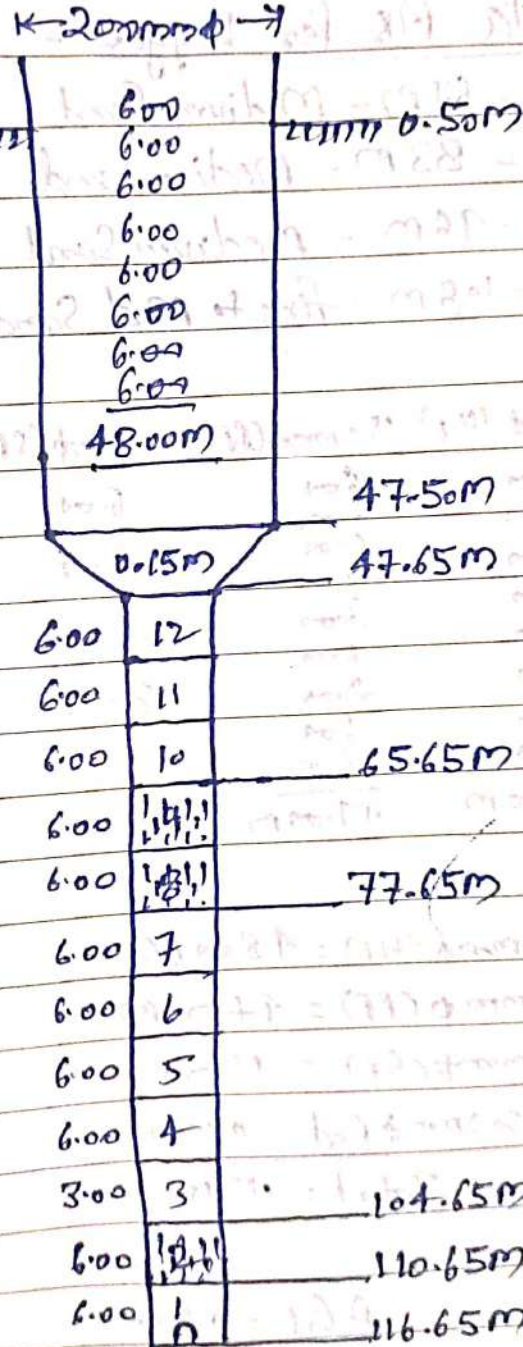 200mmφ
6.00
6.00 0.50m
6.00
6.00
6.00
6.00
6.00
6.00
48.00m
47.50m
0.15m 47.65m
6.00 12
6.00 11
6.00 10 65.65m
6.00 9
6.00 8 77.65m
6.00 7
6.00 6
6.00 5
6.00 4
3.00 3 104.65m
6.00 2 110.65m
6.00 1 116.65m